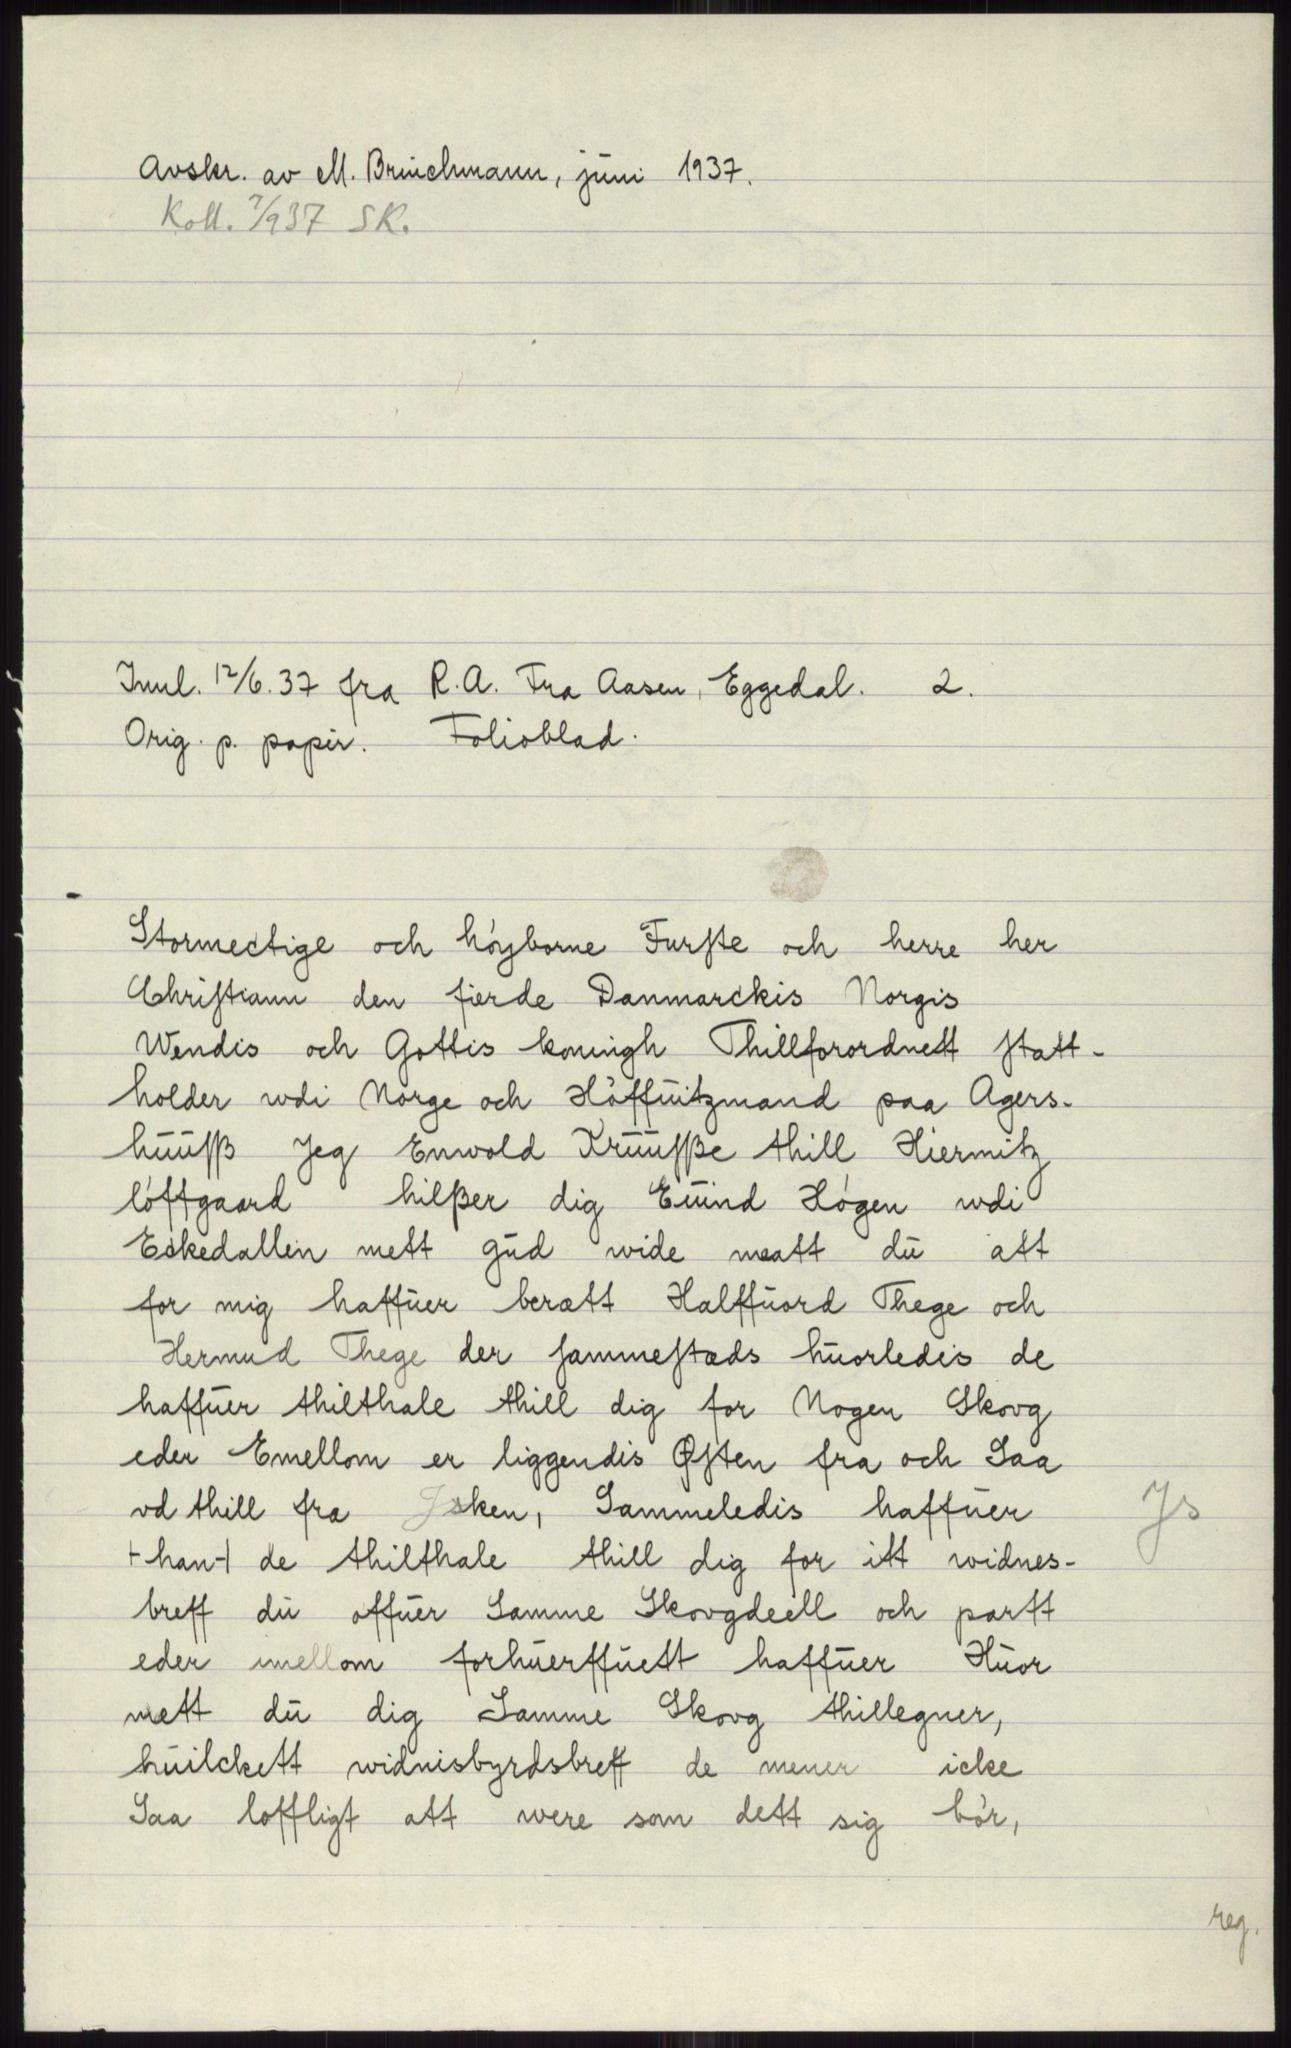 Avskr. av M. Brinchmann, juni 1937.
Koll. 7/937 SK.
Innl. 12/6. 37 fra R. A. Fra Aasen, Eggedal. 2.
Orig. p. papir. Folioblad.
Stormectige och høyborne Furste och herre her
Christiann den fierde Danmarckis Norgis
Wendis och Gottis koningh Thillforordnett statt-
holder wdi Norge och Høffuitzmand paa Agers-
huuss Jeg Enwold Kruusse thill Hiermitz
løftgaard hilßer dig Euind Høgen wdi
Eckedallen mett gud wide maatt du att
for mig haffuer berætt Halffuord Thege och
Hermud Thege der sammestæds huorledis de
haffuer thilthale thill dig for Nogen Skovg
eder Emellom er liggendis Østen fra och Saa
vd thill fra Jsken, Sammeledis haffuer Js
⊢han⊣ de thilthale thill dig for itt widnes-
breff du offuer Samme Skovgdeell och partt
eder imellom forhuerffuett haffuer Huor
mett du dig Samme Skovg thillegner,
huilckett widnisbyrdsbreff de mener icke
Saa loffligt att were som dett sig bør,
reg.